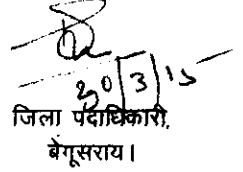 30/3/15
जिला पदाधिकारी,
बेगूसराय।